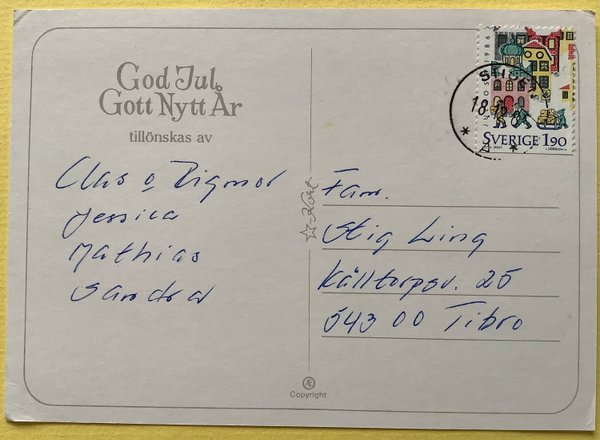 God Jul
Gott Nytt År
tillönskas av
Clas o Rigmor
Jessica
Mathias
Sandra
Fam.
Stig Ling
Källtorpsv. 25
543 00 Tibro
SVERIGE 1.90
1986
18.12.8
Copyright